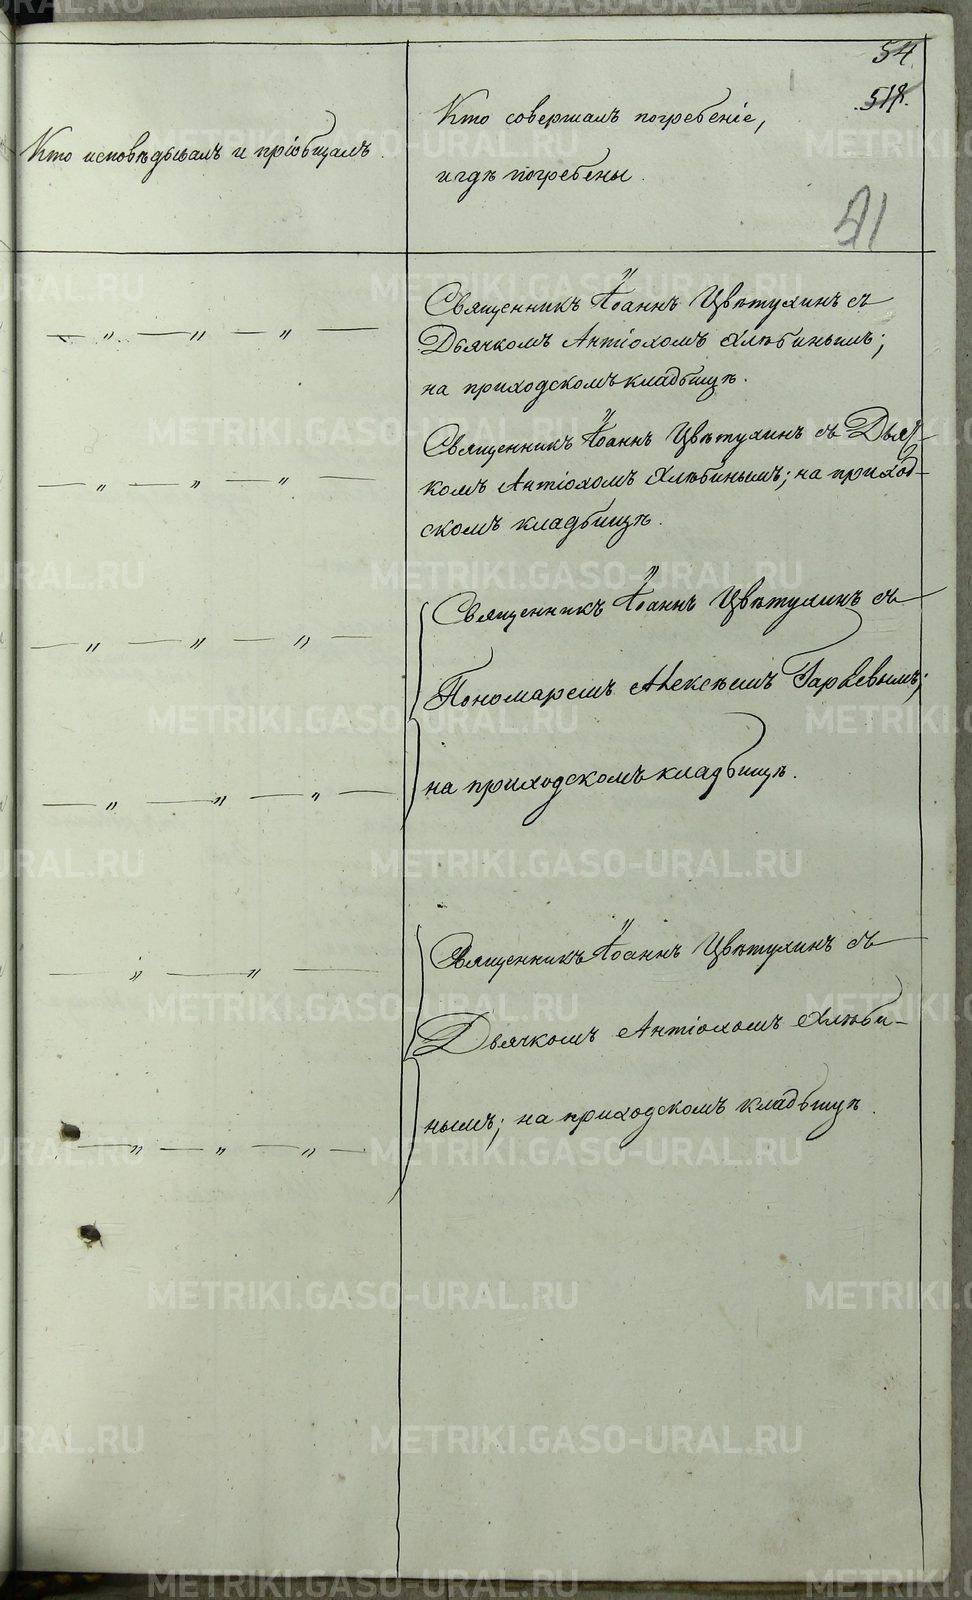 54
518.
41
Кто исповѣдывалъ и пріобщалъ.
Кто совершалъ погребеніе,
и гдѣ погребены.
— „ — „ — „ —
Священникъ Іоаннъ Цвѣтухинъ съ
Дьячкомъ Антіохомъ Хлѣбинымъ;
на приходскомъ кладбищѣ.
— „ — „ — „ —
Священникъ Іоаннъ Цвѣтухинъ съ Дьяч-
комъ Антіохомъ Хлѣбинымъ; на приход-
скомъ кладбищѣ.
— „ — „ — „ —
Священникъ Іоаннъ Цвѣтухинъ съ
Пономаремъ Алексѣемъ Гаряевымъ;
— „ — „ — „ —
на приходскомъ кладбищѣ.
— „ — „ —
Священникъ Іоаннъ Цвѣтухинъ съ
Дьячкомъ Антіохомъ Хлѣби-
— „ — „ — „ —
нымъ; на приходскомъ кладбищѣ.
METRIKI.GASO-URAL.RU